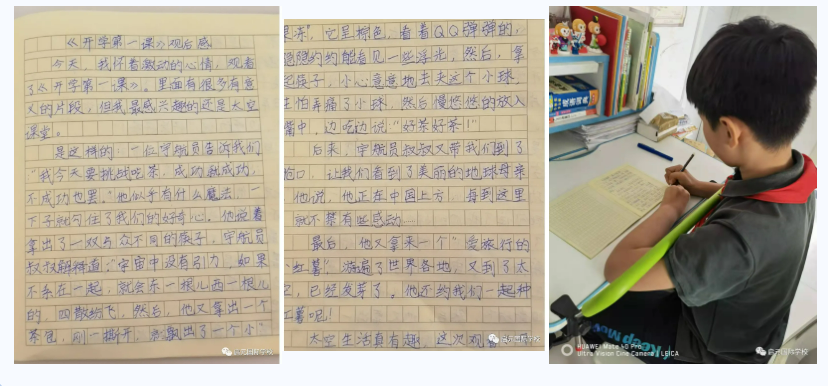 《开学第一课》观后感
今天，我怀着激动的心情，观看
了《开学第一课》。里面有很多有意
义的片段，但我最感兴趣的还是太空
课堂。
是这样的：一位宇航员告诉我们
“我今天要挑战吃茶，成功就成功，
不成功也罢。”他似乎有什么魔法，一
下子就勾住了我们的好奇心。他说着
拿出了一双与众不同的筷子，宇航员
叔叔解释道：“宇宙中没有引力，如果
不系在一起，就会东一根儿西一根儿
的，四散纷飞，然后，他又拿出一个
茶包，刚一撕开，就飘出了一个小“
果冻”，它呈棕色，看着QQ弹弹的，
隐隐约约能看见一些浮光，然后，拿
起筷子，小心意意地去夹这个小球，
生怕弄痛了小球，然后慢悠悠的放入
嘴中，边吃边说：“好茶好茶！”
后来，宇航员叔叔又带我们到了
舱口，让我们看到了美丽的地球母亲
他说，他正在中国上方，每到这里
就不禁有些感动……
最后，他又拿来一个“爱旅行的
红薯”，游遍了世界各地，又到了太
空，已经发芽了。他还约我们一起种
红薯呢！
太空生活真有趣，这次观看
成语词典
Keep Moving
HUAWEI Mate 40 Pro
Ultra Vision Cine Camera | LEICA